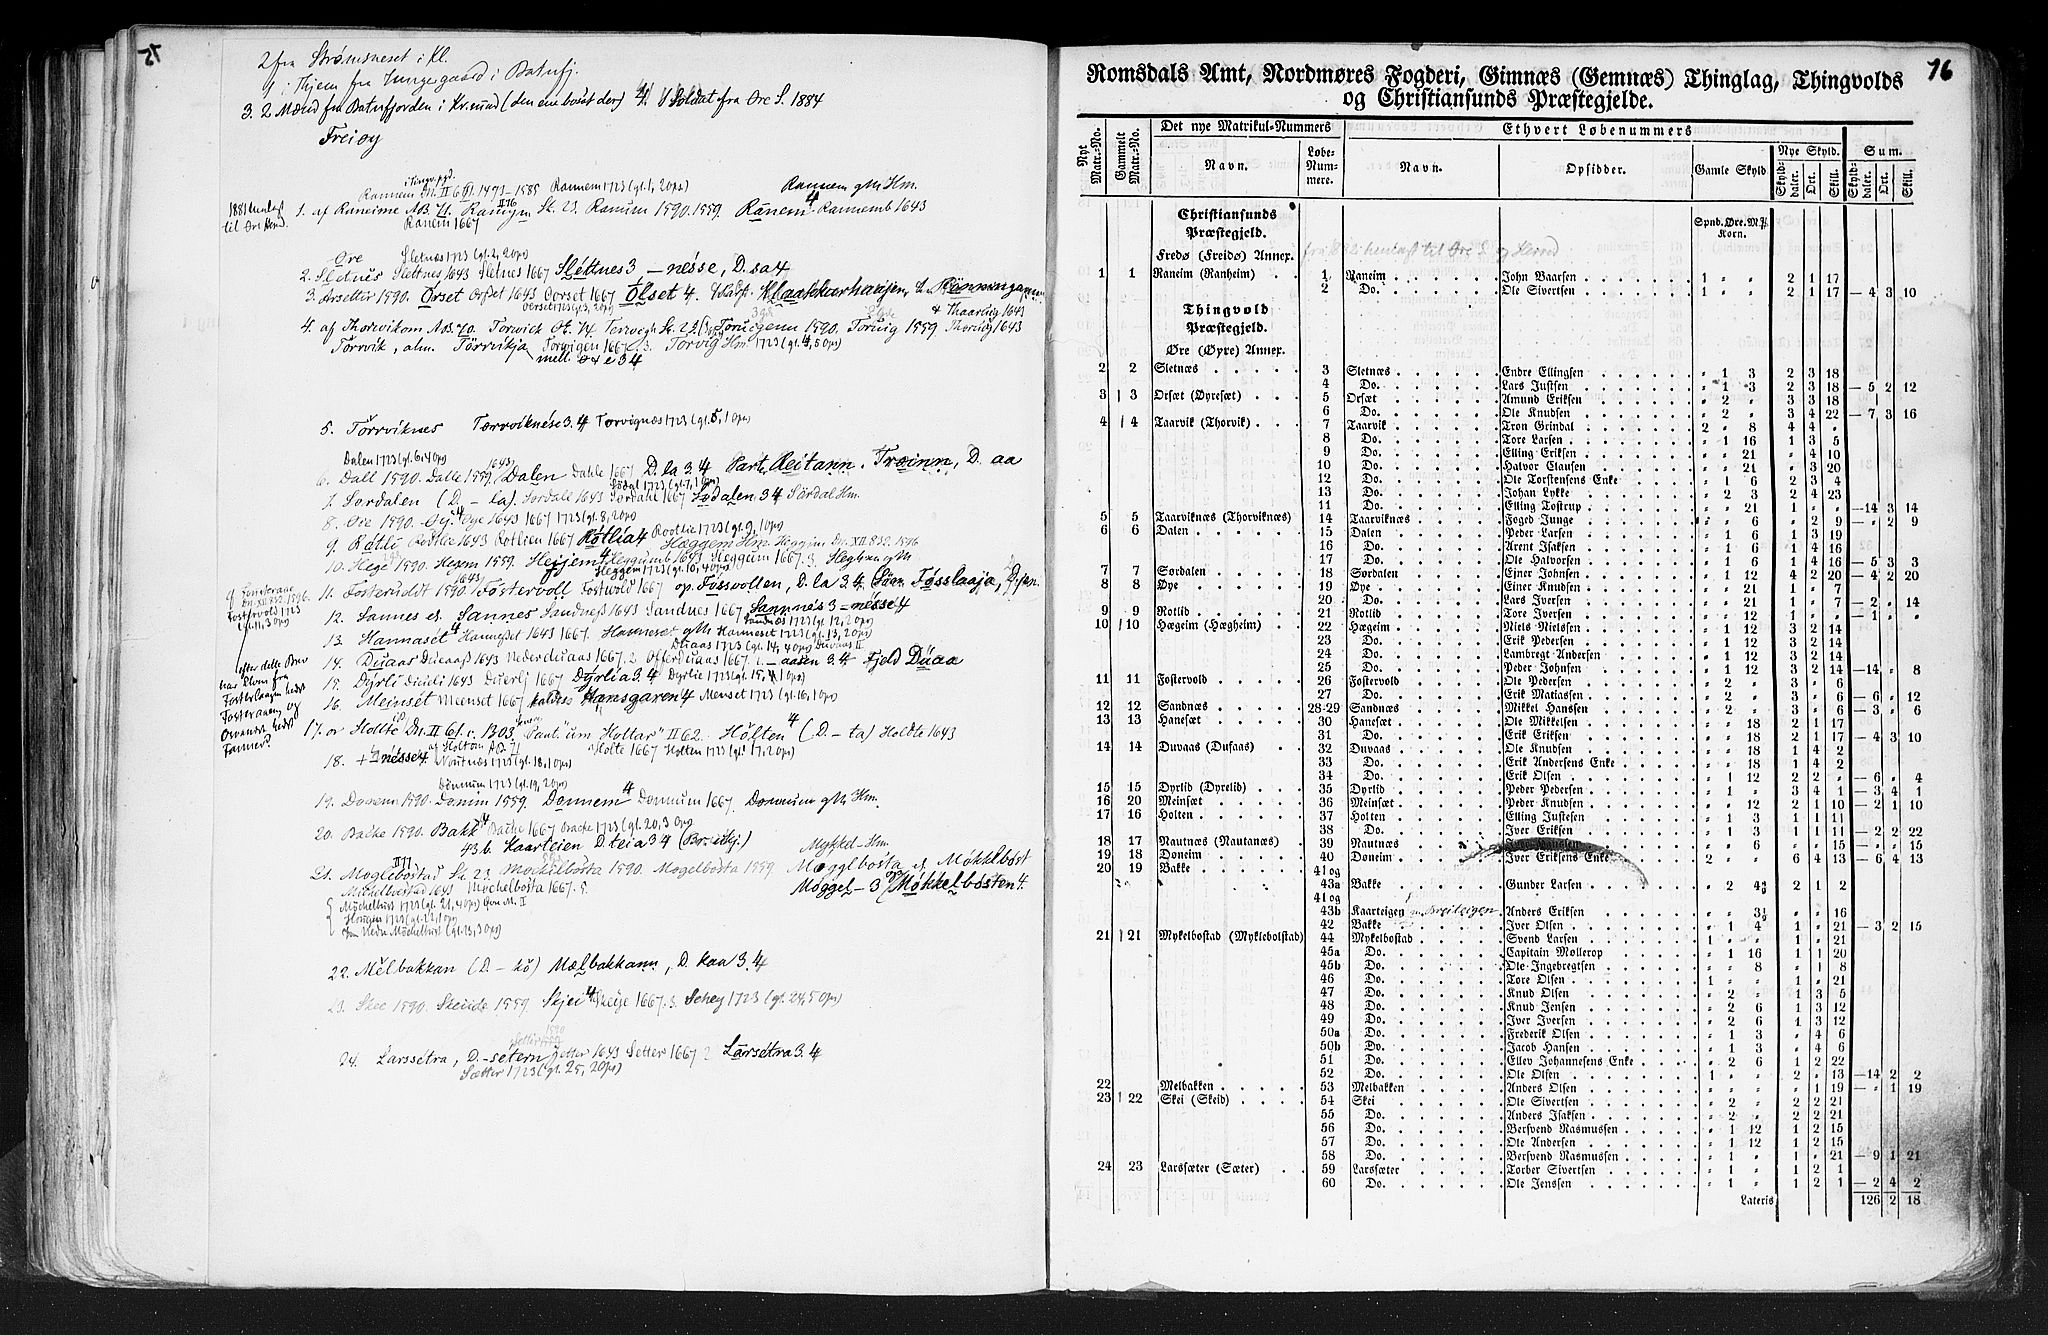 75
2 fra Strømsneset i Kl.
1 i Hjem fra Junge gaard i Batnfj.
3. 2 Mænd fra Batnfjorden i Kr.sund (den ene bosat der) 4. 1 Soldat fra Øre S. 1884
Freiøy
i Tingv. pgd.
Ranem DN. II 61. 1473-1585 Rannem 1723 (gl. 1, 2 ops) Rannem gMt Hm.
1881 henlagt til Øre Hrd.
1. af Raneime AB. 71. Raneim Sk. 23. Ranum 1590. 1559. Ranem 4. Rannemb 1643
Ranem 1667
Øre Sletnæs 1723 (gl. 2, 2 ops)
2. Sletnes Slettnes 1643 Sletnes 1667 Slettnes 3 -nesse, D. sa 4
3. Arsetter 1590. Orset Orset 1643 Oorset 1667 Ølset 4.
4. af Thorvikom AB. 70. Torwick 1590. Toruig 1559 Thoruig 1643
Torvik, alm. Torrvikja Torvigen 1667. 3. Torvig Hm 1723 (gl. 4, 5 ops)
5. Torrviknes Torrviknese 3. 4 Torvignæs 1723 (gl. 5, 1 ops)
Dalen 1723 (gl. 6, 4 ops) 1643
6. Dall 1590. Dalle 1559 Dalen Dahle 1667 D. la 3. 4 Part. Reitann. Trøinn, D. aa
7. Sørdalen (D - la). Sørdalle 1643 Sørdahl 1667 Sødalen 3 4 Sördal Hm.
8. Øre 1590. Øy. 4 Øye 1643 1667 1723 (gl. 8, 2 ops)
9. Rotli Rotlie 1643 Rotlien 1667 Røtlia 4 Rootlie 1723 (gl. 9, 1 ops)
10. Hege 1590. Hegem 1559. Heijem 4 Heggumb 1643 Heggum 1667. 3
11. Fosteruldt 1590 Fostervoll Fostwold 1667 op. Fossvollen, D. la 3. 4
12. Sannes el. Sannes Sandnes 1643 Sandnes 1667 Sannnes 3 -nesse 4
Sandnes 1723 (gl. 12, 2 ops)
13. Hannaset 4 Hanneset 1643 1667. Hanneset gMt Hanneset 1723 (gl. 13, 2 ops)
14. Duaas Dueaas 1643 Nederduaas 1667. 2. Offerduaas 1667. 1. -aasen 3. 4 Fjeld Duaa
15. Dyrli Diurli 1643 Duerlj 1667 Dyrlia 3. 4 Dyrlie 1723 (gl. 15, 4 ops)
16. Meinset Meenset 1667 kaldes Hansgaren 4 Menset 1723 (gl. 16, 1 ops)
17. or Holtte DN. II 61. c. 1303. "um Holtar" II 62. Holten 4 (D - ta) Holdte 1643
Holte 1667 Holten 1723 (gl. 17, 2 ops)
18. -nesse 4 Noutnæs 1723 (gl. 18, 1 ops)
Donnum 1723 (gl. 19, 2 ops)
19. Donem 1590. Donim 1559. Donnem 4 Donnum 1667. Donnum gMt Hm.
20. Backe 1590. Bakk 4 Backe 1667 Backe 1723 (gl. 20, 3 ops)
43 b. Kaarteien D. teia 3 4 (Breitej.)
21. Moglebostad Sk. 23. Mockelbosta 1590. Mogelbosta 1559 Møgglbosta el. Møkkelbøst
Michelbostad 1643 Mochelbosta 1667. 5. Møggel- 3 og Møkkelbøsten 4.
22. Melbakkan (D - ko) Mælbakkann, D. kaa 3. 4
23. Skee 1590. Skeide 1559. Skjei 4 Skeije 1667. 3 Schey 1723 (gl. 24, 5 ops)
24. Larssetra, D. -setern Setter 1643 Setter 1667 2 Larsetra 3. 4
Sætter 1723 (gl. 25, 2 ops)
76
Romsdals Amt, Nordmøres Fogderi, Gimnæs (Gemnæs) Thinglag, Thingvolds
og Christiansunds Præstegjelde.
Nyt Matr.-No. Gammelt Matr.-No. Det nye Matrikul-Nummers Ethvert Løbenummers
Navn. Løbe-Nummere. Navn. Opsidder. Gamle Skyld Nye Skyld. Sum.
Skylddaler. Ort. Skill. Skylddaler. Ort. Skill.
Christiansunds Præstegjeld. Spnd. Øre. M℔ Korn.
Fredø (Freidø) Annex. fra 1882 henlagt til Øre S. og Herred
1 1 Raneim (Ranheim) 1 Raneim John Baarsen 1 " " 2 1 17
2 Do. Ole Sivertsen 1 " " 2 1 17 — 4 3 10
Thingvold Præstegjeld.
Øre (Øyre) Annex.
2 2 Sletnæs 3 Sletnæs Endre Ellingsen " 1 3 2 3 18
4 Do. Lars Justsen " 1 3 2 3 18 — 5 2 12
3 3 Orsæt (Øyresæt) 5 Orsæt Amund Eriksen " 2 " 3 3 18
6 Do. Ole Knudsen " 2 " 3 4 22 — 7 3 16
4 4 Taarvik (Thorvik) 7 Taarvik Tron Grindal 2 " 8 4 4 "
8 Do. Tore Larsen " 1 16 1 3 5
9 Do. Elling Eriksen " " 21 " 4 10
10 Do. Halvor Clausen " " 21 " 3 20
12 Do. Ole Torstensens Enke " 1 6 2 3 4
13 Do. Johan Lykke " 2 3 2 4 23
11 Do. Elling Tostrup " " 21 1 " " —14 3 14
5 5 Taarviknæs (Thorviknæs) 14 Taarviknæs Foged Junge " " 6 " 2 9 — " 2 9
6 6 Dalen 15 Dalen Peder Larsen " 1 6 1 3 19
16 Do. Arent Isaksen " 1 6 1 4 16
17 Do. Ole Halvorsen " 1 6 1 4 16 — 5 3 3
7 7 Sørdalen 18 Sørdalen Ejner Johnsen " 1 12 4 2 20 — 4 2 20
8 8 Øye 19 Øye Einer Knudsen " " 21 1 " 7
20 Do. Lars Iversen " " 21 1 " 7 — 2 " 14
9 9 Rotlid 21 Rotlid Tore Iversen " " 12 1 " " — 1 " "
10 10 Hægeim (Hægheim) 22 Hægeim Niels Nielssen " 1 12 3 2 14
23 Do. Erik Pedersen " 1 12 3 2 14
24 Do. Lambregt Andersen " 1 12 3 2 14
25 Do. Peder Johnsen " 1 12 3 2 14 —14 " 8
11 11 Fostervold 26 Fostervold Ole Pedersen " 2 " 3 " 6
27 Do. Erik Matiassen " 2 " 3 " 6 — 6 " 12
12 12 Sandnæs 28-29 Sandnæs Mikkel Hanssen " 2 " 3 " 6 — 3 " 6
13 13 Hanesæt 30 Hanesæt Ole Mikkelsen " " 18 2 1 17
31 Do. Erik Eriksen " " 18 2 1 17 — 4 3 10
14 14 Duvaas (Dufaas) 32 Duvaas Ole Knudsen " " 18 1 4 2
33 Do. Erik Andersens Enke " " 18 1 4 2
34 Do. Erik Olsen " 1 12 2 2 " — 6 " 4
15 15 Dyrlid (Dyrelid) 35 Dyrlid Peder Pedersen " 1 " 3 4 1 — 3 4 1
16 20 Meinsæt 36 Meinsæt Peder Knudsen " " 12 2 1 10 — 2 1 10
17 16 Holten 37 Holten Elling Justesen " 1 3 1 1 11
38 Do. Iver Eriksen " 1 3 1 1 11 — 2 2 22
18 17 Nautnæs (Nautanæs) 39 Nautnæs " " 6 " " 15 — " " 15
19 18 Doneim 40 Doneim Iver Eriksens Enke 2 " " 6 4 13 — 6 4 13
20 19 Bakke 41 og
43a Bakke Gunder Larsen " 2 4½ 2 1 2
41 og
43b Kaarteigen m Breiteigen Anders Eriksen " " 3½ " " 16
42 Bakke Iver Olsen " 1 4 1 " 21 — 3 2 15
21 21 Mykelbostad (Myklebolstad) 44 Mykelbostad Svend Larsen 1 " " 1 " 21
45a Do. Capitain Møllerop " 1 16 1 1 20
45b Do. Ole Ingebregtsen " " 8 " 1 8
46 Do. Tore Olsen 1 " " 1 " 21
47 Do. Knud Olsen " 2 " 1 3 5
48 Do. Knud Jensen " 2 6 1 3 12
49 Do. Iver Iversen " 2 6 1 3 12
50a Do. Frederik Olsen " 1 3 " 4 6
50b Do. Jacob Hansen " 1 3 " 4 6
51 Do. Ellev Johannesens Enke " 2 6 1 2 22
52 Do. Ole Olsen 1 " " 2 " 13 —14 2 2
22 Melbakken 53 Melbakken Anders Olsen " " " " 1 19 — " 1 19
23 22 Skei (Skeid) 54 Skei Ole Sivertsen " 2 " 2 2 21
55 Do. Anders Isaksen " 2 " 2 2 21
56 Do. Bersvend Rasmussen " 1 12 1 2 15
57 Do. Ole Andersen " 1 12 1 2 15
58 Do. Bersvend Rasmussen " 1 " 1 " 21 — 9 1 21
24 23 Larssæter (Sæter) 59 Larssæter Torber Sivertsen " 1 " 1 2 1
60 Do. Ole Jenssen " 1 " 1 2 1 — 2 4 2
Lateris 126 2 18